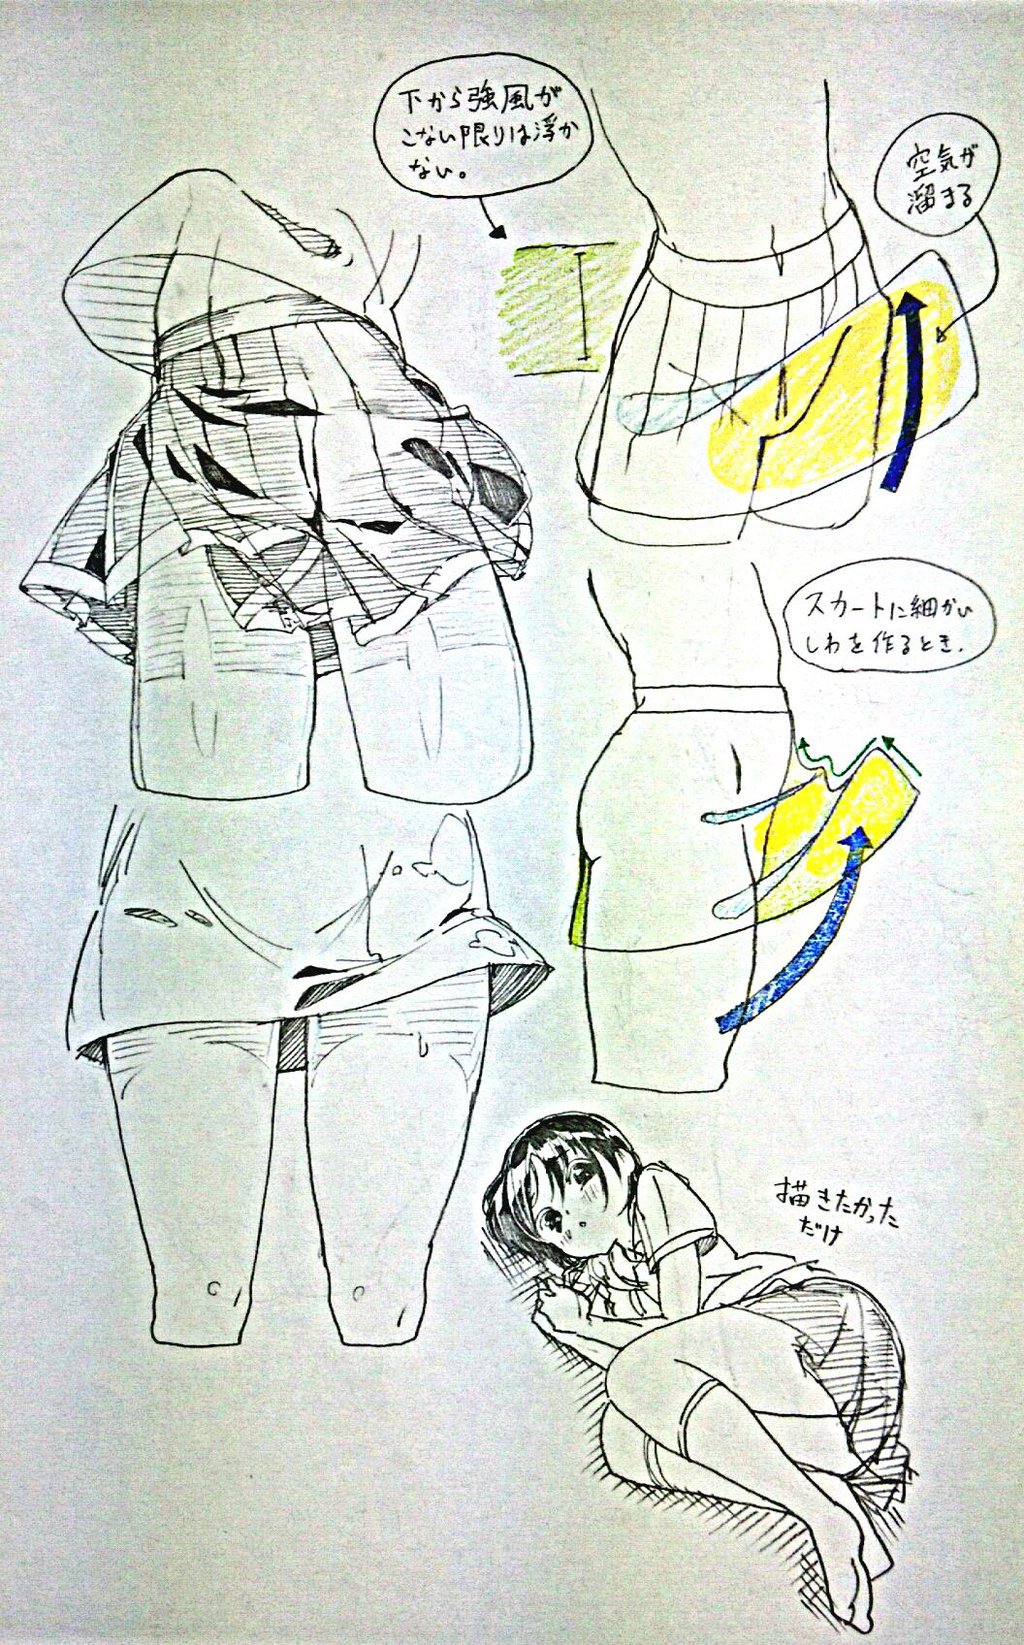 下から強風が
こない限りは浮か
ない。
空気が
溜まる
スカートに細かい
しわを作るとき.
描きたかった
だけ